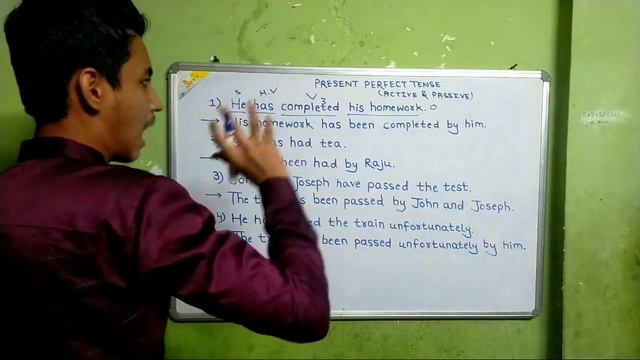 PRESENT PERFECT TENSE
(ACTIVE & PASSIVE)
S H.V V3
1) He has completed his homework. O
→ His homework has been completed by him.
had tea.
been had by Raju.
3) Joseph have passed the test.
→ The been passed by John and Joseph.
4) He the train unfortunately.
The been passed unfortunately by him.